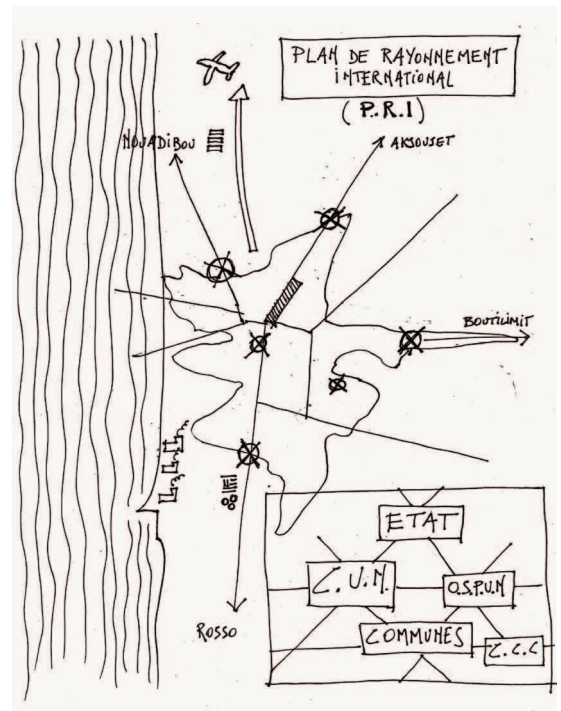 PLAN DE RAYONNEMENT
INTERNATIONAL
(P.R.I)
NOUADIBOU
AKJOUJET
BOUTILIMIT
ROSSO
ETAT
C.U.N.
O.S.P.U.N
COMMUNES
C.C.C